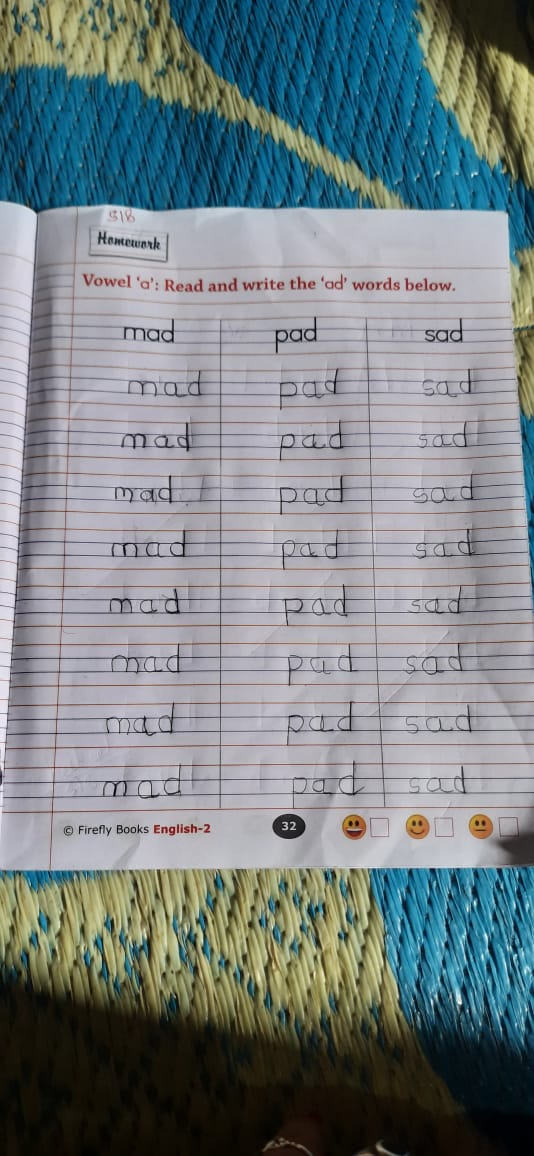 Homework
Vowel 'a': Read and write the 'ad' words below.
mad pad sad
mad pad sad
mad pad sad
mad pad sad
mad pad sad
mad pad sad
mad pad sad
mad pad sad
mad pad sad
© Firefly Books English-2 32